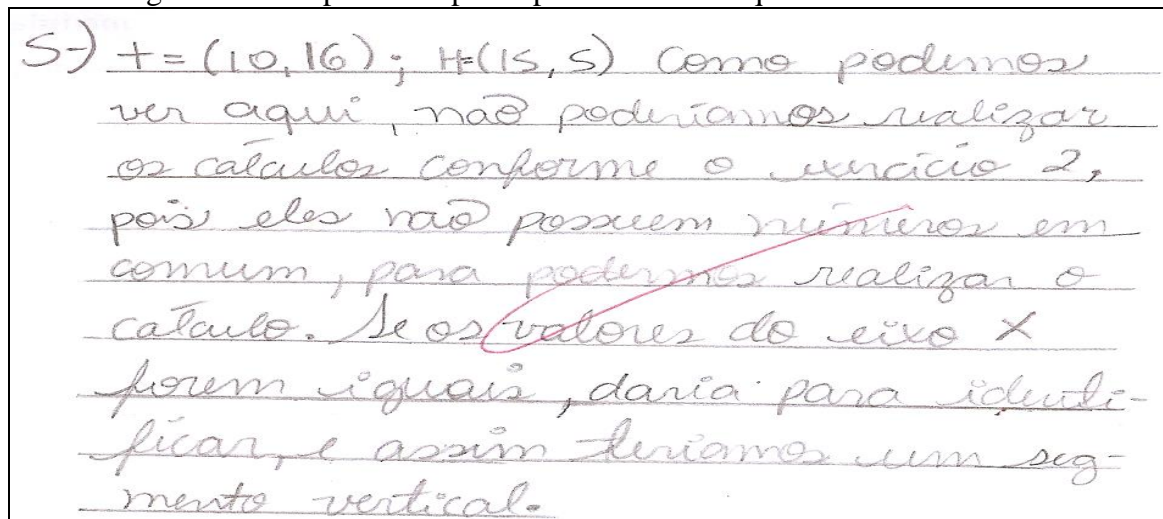 5-) T=(10,16); H=(15,5) como podemos
ver aqui, não poderíamos realizar
os cálculos conforme o exercício 2,
pois eles não possuem números em
comum, para podermos realizar o
cálculo. Se os valores do eixo X
forem iguais, daria para identi-
ficar, e assim teríamos um seg-
mento vertical.